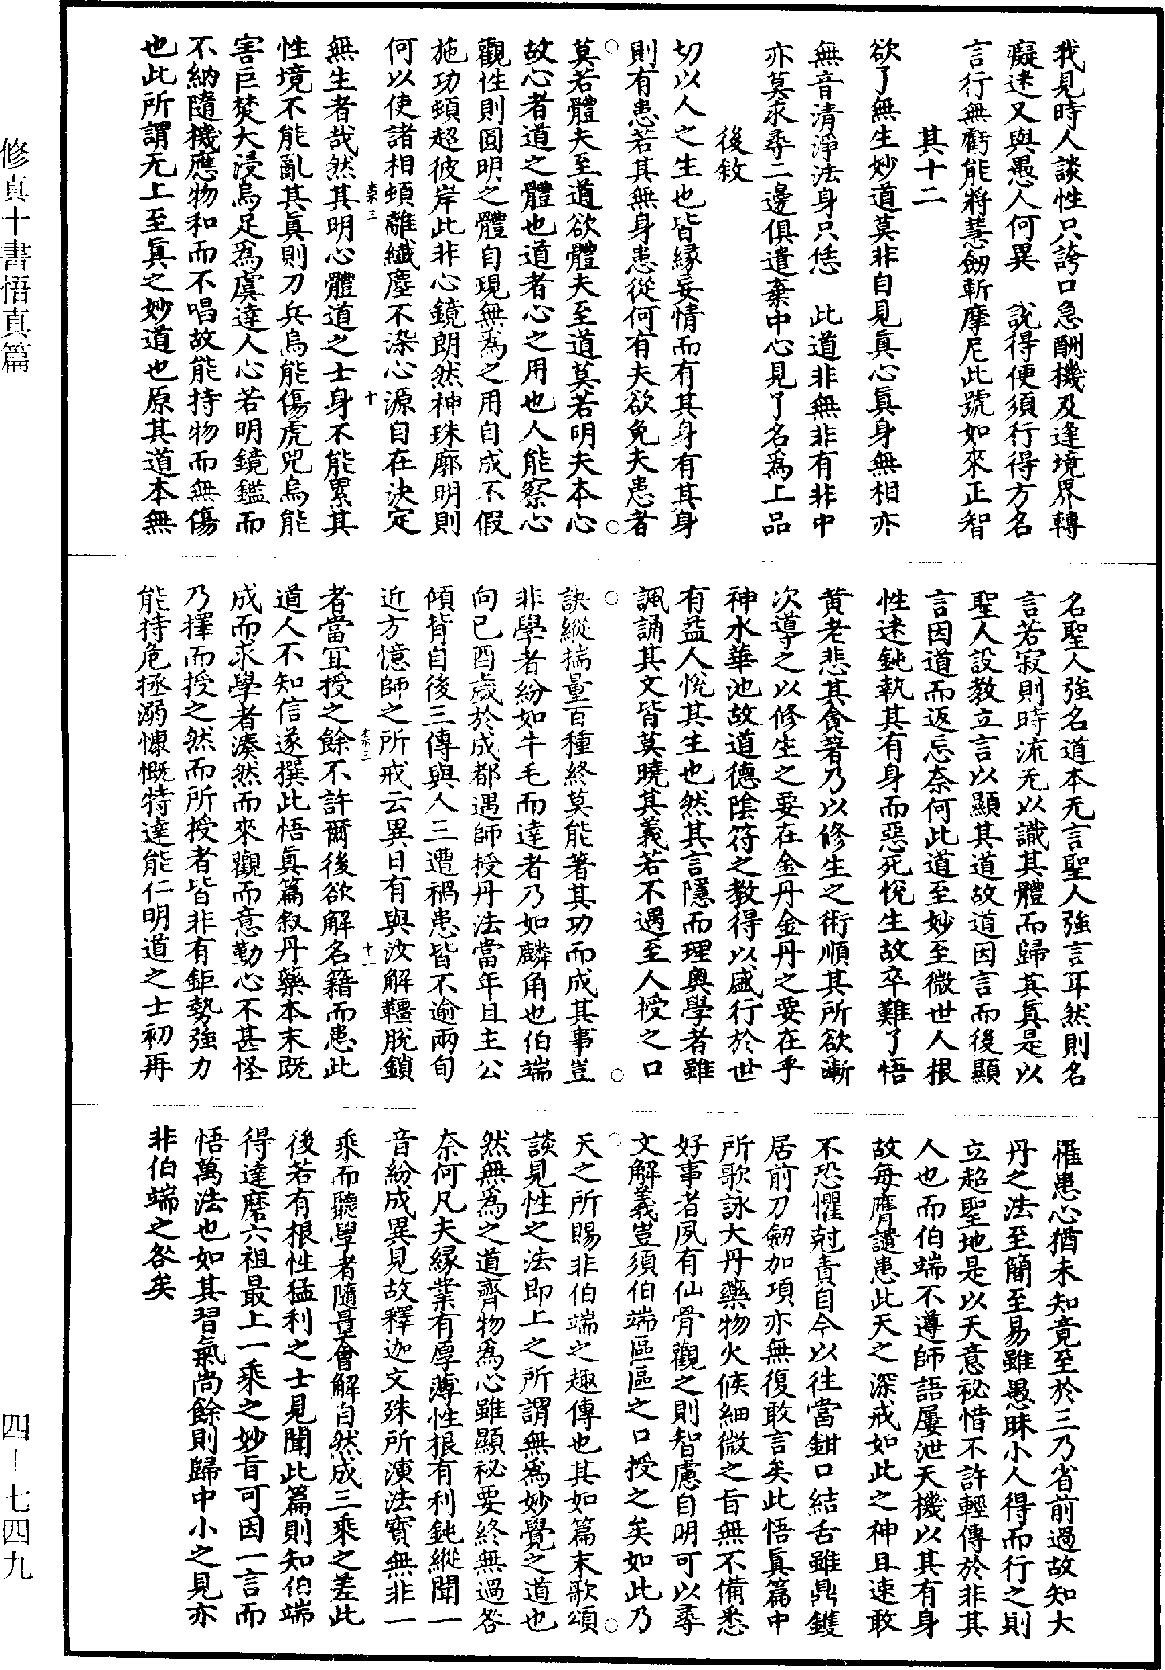 我見時人談性只誇口急酬機及逢境界轉
癡迷又與愚人何異　說得便須行得方名
言行無虧能將慧劒斬摩尼此號如來正智
其十二
欲了無生妙道莫非自見真心真身無相亦
無音清淨法身只恁　此道非無非有非中
亦莫求尋二邊俱遣棄中心見了名爲上品
後敘
切以人之生也皆緣妄情而有其身有其身
則有患若其無身患從何有夫欲免夫患者
莫若體夫至道欲體夫至道莫若明夫本心
故心者道之體也道者心之用也人能察心
觀性則圓明之體自現無爲之用自成不假
施功頓超彼岸此非心鏡朗然神珠廓明則
何以使諸相頓離纖塵不染心源自在決定
無生者哉然其明心體道之士身不能累其
性境不能亂其真則刀兵烏能傷虎兕烏能
害巨焚大浸烏足爲虞達人心若明鏡鑑而
不納隨機應物和而不唱故能持物而無傷
也此所謂无上至真之妙道也原其道本無
名聖人強名道本无言聖人強言耳然則名
言若寂則時流无以識其體而歸其真是以
聖人設教立言以顯其道故道因言而後顯
言因道而返忘奈何此道至妙至微世人根
性迷鈍執其有身而惡死悅生故卒難了悟
黃老悲其貪著乃以修生之術順其所欲漸
次導之以修生之要在金丹金丹之要在乎
神水華池故道德陰符之教得以盛行於世
有益人悅其生也然其言隱而理奧學者雖
諷誦其文皆莫曉其義若不遇至人授之口
訣縱揣量百種終莫能著其功而成其事豈
非學者紛如牛毛而達者乃如麟角也伯端
向己酉歲於成都遇師授丹法當年且主公
傾背自後三傳與人三遭禍患皆不逾兩旬
近方憶師之所戒云異日有與汝解韁脫鎖
者當宜授之餘不許爾後欲解名籍而患此
道人不知信遂撰此悟真篇叙丹藥本末既
成而求學者湊然而來觀而意勤心不甚怪
乃擇而授之然而所授者皆非有鉅勢強力
能持危拯溺慷慨特達能仁明道之士初再
罹患心猶未知竟至於三乃省前過故知大
丹之法至簡至易雖愚昧小人得而行之則
立超聖地是以天意祕惜不許輕傳於非其
人也而伯端不遵師語屢泄天機以其有身
故每膺譴患此天之深戒如此之神且速敢
不恐懼尅責自今以往當鉗口結舌雖鼎鑊
居前刀劒加項亦無復敢言矣此悟真篇中
所歌詠大丹藥物火候細微之旨無不備悉
好事者夙有仙骨觀之則智慮自明可以尋
文解義豈須伯端區區之口授之矣如此乃
天之所賜非伯端之趣傳也其如篇末歌頌
談見性之法即上之所謂無爲妙覺之道也
然無爲之道齊物爲心雖顯祕要終無過咎
奈何凡夫緣業有厚薄性根有利鈍縱聞一
音紛成異見故釋迦文殊所演法寶無非一
乘而聽學者隨量會解自然成三乘之差此
後若有根性猛利之士見聞此篇則知伯端
得達磨六祖最上一乘之妙旨可因一言而
悟萬法也如其習氣尚餘則歸中小之見亦
非伯端之咎矣
修真十書悟真篇
四－七四九